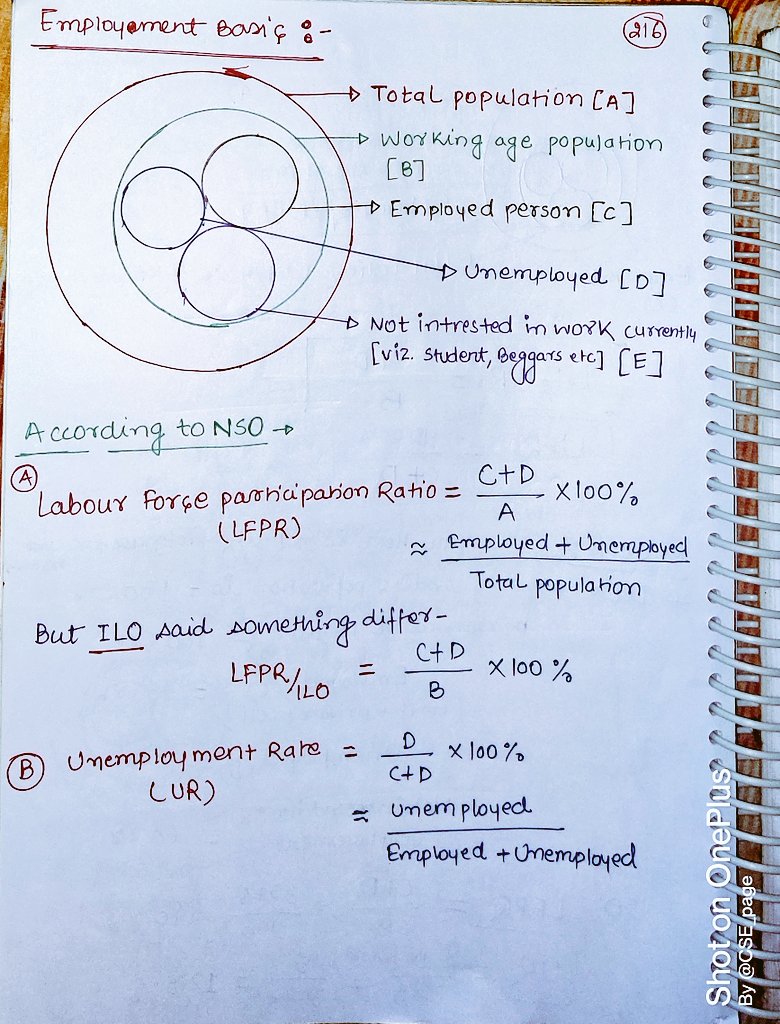 Employement Basics :-
216
Total population [A]
Working age population
[B]
Employed person [C]
Unemployed [D]
Not intrested in work currently
[viz. Student, Beggars etc] [E]
According to NSO →
A
Labour Force participation Ratio = C+D / A × 100%
(LFPR)
≈ Employed + Unemployed / Total population
But ILO said something differ-
LFPR/ILO = C+D / B × 100 %
B Unemployment Rate = D / C+D × 100%
(UR)
≈ Unemployed / Employed + Unemployed
Shot on OnePlus
By @CSE_page